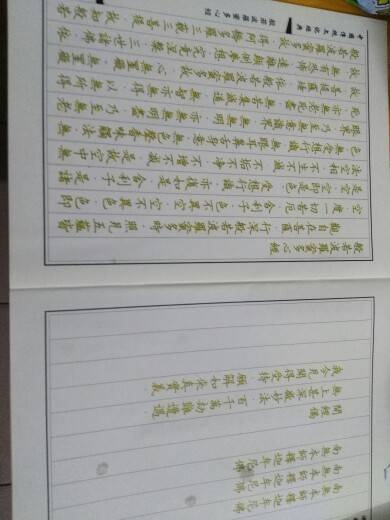 南無本師釋迦牟尼佛
南無本師釋迦牟尼佛
南無本師釋迦牟尼佛
開經偈
無上甚深微妙法 百千萬劫難遭遇
我今見聞得受持 願解如來真實義
般若波羅蜜多心經
觀自在菩薩.行深般若波羅蜜多時.照見五蘊皆
空.度一切苦厄.舍利子.色不異空.空不異色.色即
是空.空即是色.受想行識.亦復如是.舍利子.是諸
法空相.不生不滅.不垢不淨.不增不減.是故空中
無色.無受想行識.無眼耳鼻舌身意.無色聲香味觸法.無
眼界.乃至無意識界.無無明.亦無無明盡.乃至無老
死.亦無老死盡.無苦集滅道.無智亦無得.以無所得
故.菩提薩埵.依般若波羅蜜多故.心無罣礙.無罣礙
故.無有恐怖.遠離顛倒夢想.究竟涅槃.三世諸佛.依
般若波羅蜜多故.得阿耨多羅三藐三菩提.故知般若
中國傳統文化經典
般若波羅蜜多心經